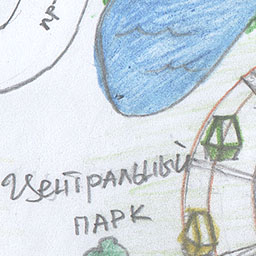 пр-
Центральный
ПАРК